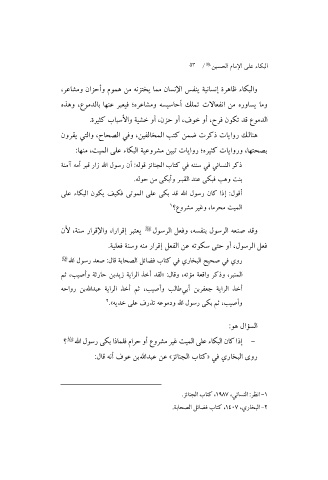 البكاء على الإمام الحسين / ٥٣
والبكاء ظاهرة إنسانية ينفس الإنسان مما يختزنه من هموم وأحزان ومشاعر،
وما يساوره من انفعالات تملك أحاسيسه ومشاعره؛ فيعبر عنها بالدموع، وهذه
الدموع قد تكون فرح، أو خوف، أو حزن، أو خشية والأسباب كثيرة.
هنالك روايات ذكرت ضمن كتب المخالفين، وفي الصحاح، والتي يقرون
بصحتها، وروايات كثيرة؛ روايات تبين مشروعية البكاء على الميت، منها:
ذكر النسائي في سننه في كتاب الجنائز قوله: أن رسول الله زار قبر أمه آمنة
بنت وهب فبكى عند القبر وأبكى من حوله.
أقول: إذا كان رسول الله قد بكى على الموتى فكيف يكون البكاء على
الميت محرما، وغير مشروع؟١
وقد صنعه الرسول بنفسه، وفعل الرسول ﷺ يعتبر إقرارا، والإقرار سنة، لأن
فعل الرسول، أو حتى سكوته عن الفعل إقرار منه وسنة فعلية.
روي في صحيح البخاري في كتاب فضائل الصحابة قال: صعد رسول الله ﷺ
المنبر، وذكر واقعة مؤتة، وقال: «لقد أخذ الراية زيدبن حارثة وأصيب، ثم
أخذ الراية جعفربن أبي‌طالب وأصيب، ثم أخذ الراية عبدالله‌بن رواحه
وأصيب، ثم بكى رسول الله ودموعه تذرف على خديه».٢
السؤال هو:
- إذا كان البكاء على الميت غير مشروع أو حرام فلماذا بكى رسول الله ﷺ؟
روى البخاري في «كتاب الجنائز» عن عبدالله‌بن عوف أنه قال:
١- انظر: النسائي، ١٩٨٧، كتاب الجنائز.
٢- البخاري، ١٤٠٧، كتاب فضائل الصحابة.